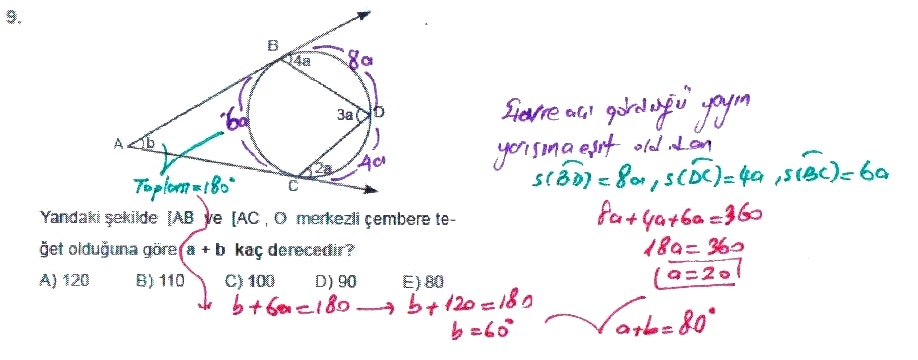 9.
B
4a
8a
6a
3a
D
A
b
2a
4a
C
Toplam=180°
Çevre açı gördüğü yayın
yarısına eşit old.dan
s(BD)=8a, s(DC)=4a, s(BC)=6a
8a+4a+6a=360
18a=360
a=20
Yandaki şekilde [AB ve [AC , O merkezli çembere te-
ğet olduğuna göre a + b kaç derecedir?
A) 120 B) 110 C) 100 D) 90 E) 80
b+6a=180 → b+120=180
b=60°
a+b=80°